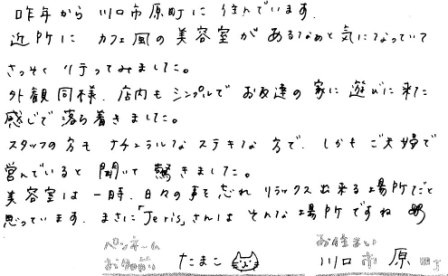 昨年から 川口市原町に 住んでいます。
近所に カフェ風の美容室が あるなぁと気になっていて
さっそく 行ってみました。
外観同様、店内もシンプルで お友達の家に遊びに来た
感じで落ち着きました。
スタッフの方も ナチュラルなステキな方で、しかも ご夫婦で
営んでいると聞いて 驚きました。
美容室は一時、日々の事を忘れ リラックス出来る場所だと
思っています。まさに「Jeris」さんは そんな場所ですね
ペンネーム お住まい
たまこ 川口市 原